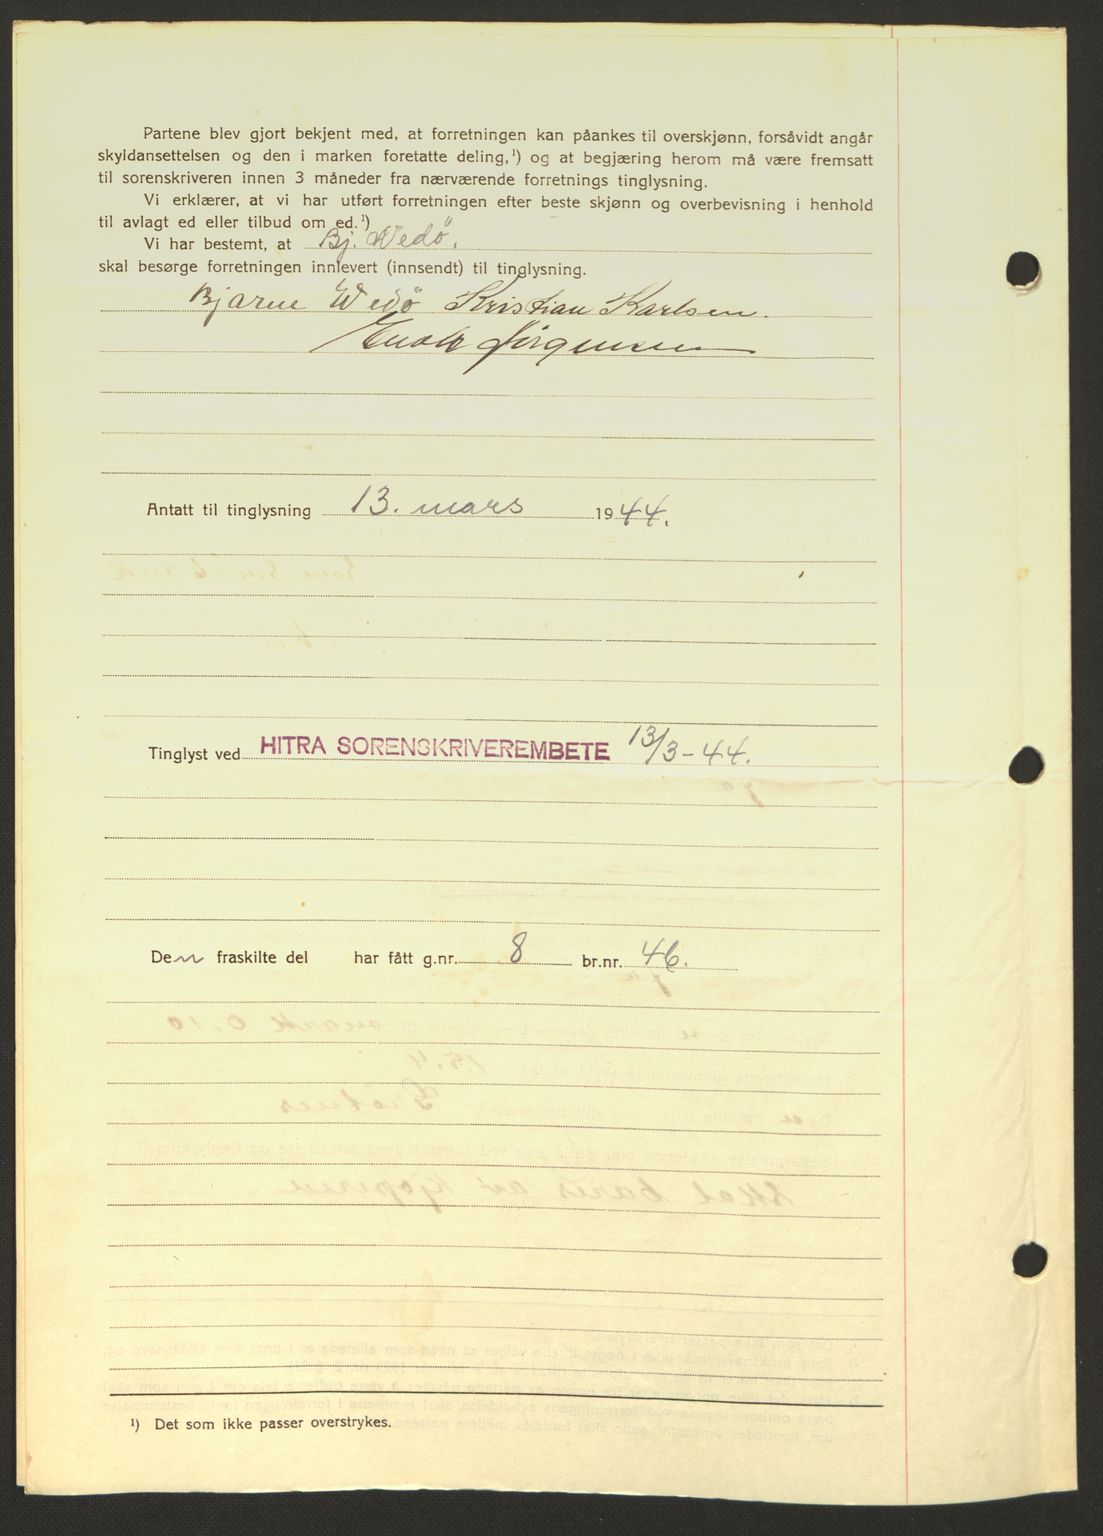 Partene blev gjort bekjent med, at forretningen kan påankes til overskjønn, forsåvidt angår
skyldansettelsen og den i marken foretatte deling,¹) og at begjæring herom må være fremsatt
til sorenskriveren innen 3 måneder fra nærværende forretnings tinglysning.
Vi erklærer, at vi har utført forretningen efter beste skjønn og overbevisning i henhold
til avlagt ed eller tilbud om ed.¹)
Vi har bestemt, at Bj. Wedö.
skal besørge forretningen innlevert (innsendt) til tinglysning.
Bjarne Wedö Kristian Karlsen.
Jörgensen
Antatt til tinglysning 13. mars 1944.
Tinglyst ved HITRA SORENSKRIVEREMBETE 13/3-44.
Den fraskilte del har fått g.nr. 8 br.nr. 46.
¹) Det som ikke passer overstrykes.